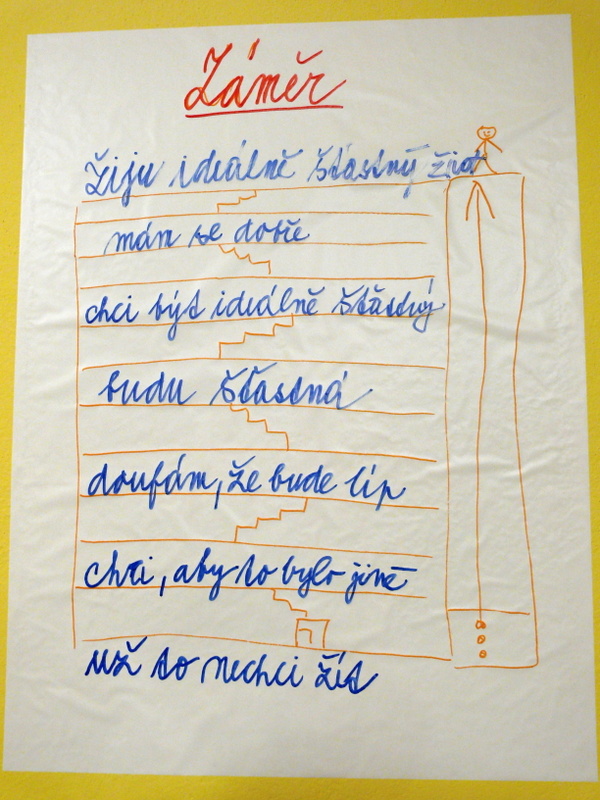 Záměr
Žiju ideálně šťastný život
mám se dobře
chci být ideálně šťastný
budu šťastná
doufám, že bude líp
chci, aby to bylo jiné
už to nechci žít